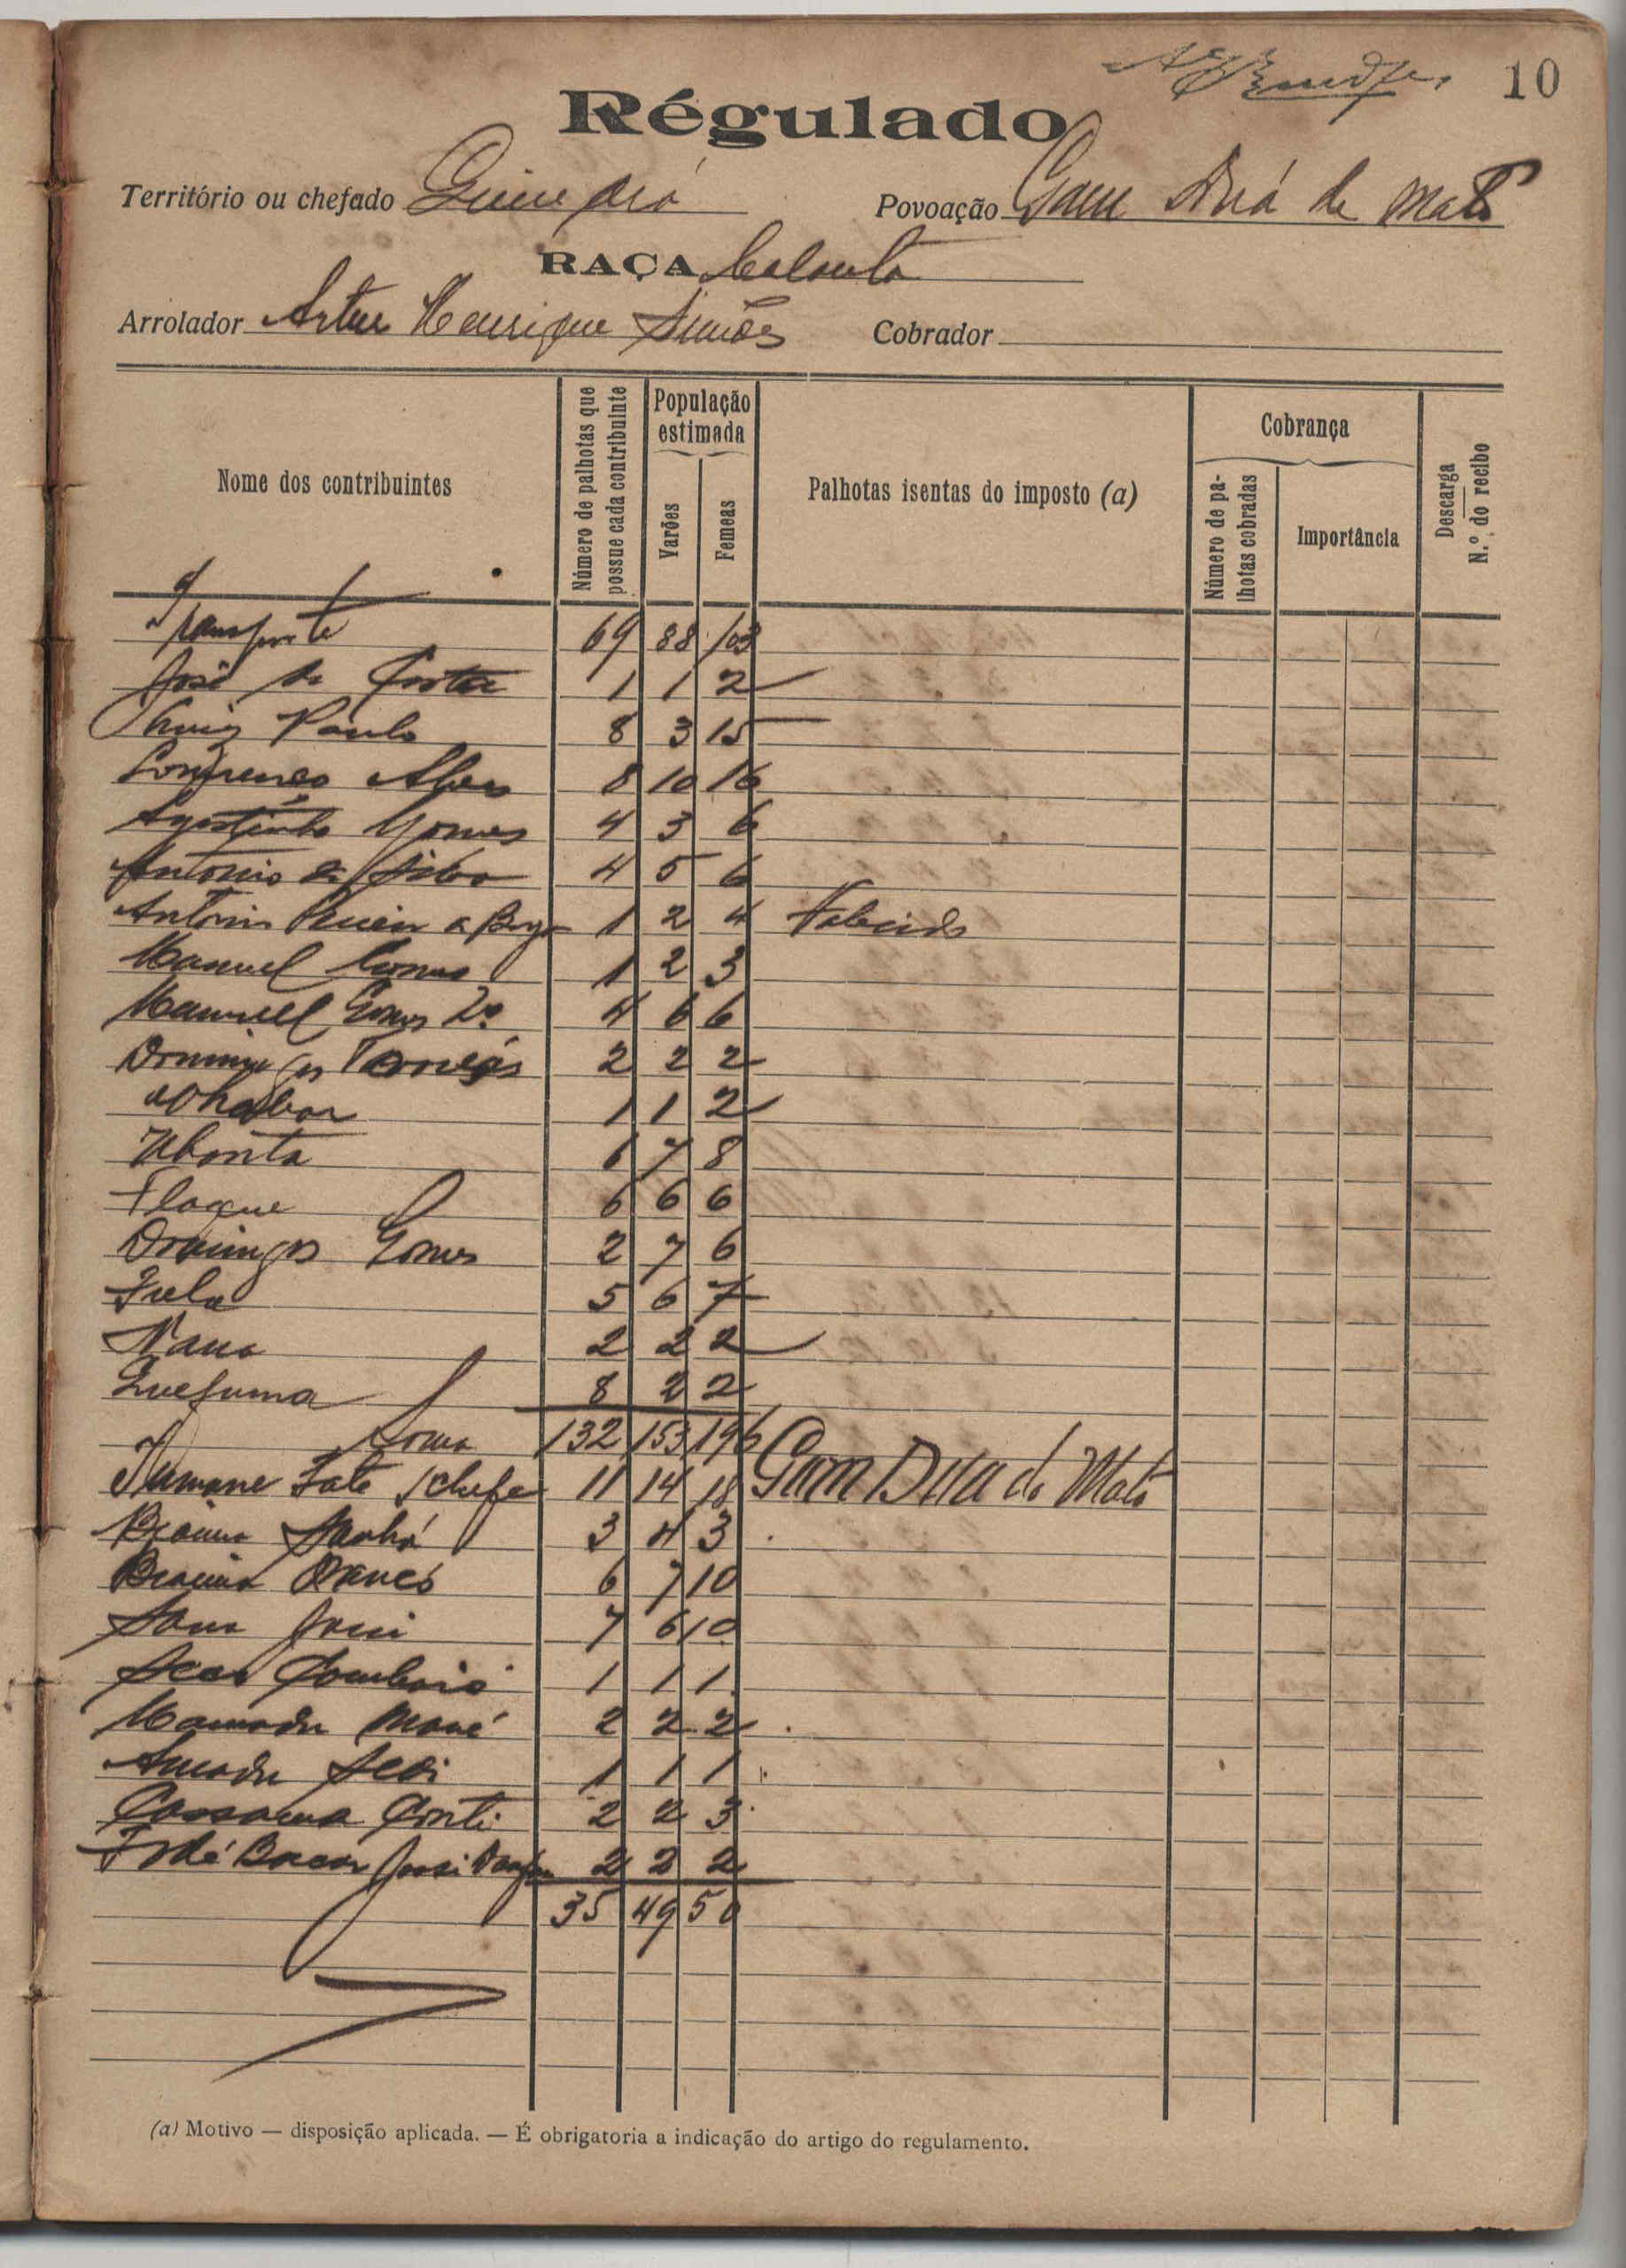 10
Régulado
Território ou chefado
Povoação Gam Duá de Mato
RAÇA
Arrolador Artur Henrique Simões Cobrador
Nome dos contribuintes
Número de palhotas que possue cada contribuinte
População estimada
Varões
Femeas
Palhotas isentas do imposto (a)
Cobrança
Número de palhotas cobradas
Importância
Descarga
N.º do recibo
Transporte 69 88 103
José da Costa 1 1 2
Luiz Paulo 8 3 15
Lourenço Alves 8 10 16
Agostinho Gomes 4 3 6
Antonio da Silva 4 5 6
Antonio 1 2 4 Falecido
Manuel Gomes 1 2 3
Manuell Gomes 2º 4 6 6
Domingos 2 2 2
1 1 2
Ubonta 6 7 8
Flaque 6 6 6
Domingos Gomes 2 7 6
Fula 5 6 7
Nana 2 2 2
Quefuma 8 2 2
Soma 132 153 196
Fate /chefe 11 14 18 Gam Dua do Mato
Braima Sanhá 3 4 3
Braima 6 7 10
Sana 7 6 10
1 1 1
Mamadu Mané 2 2 2
Amadu Seidi 1 1 1
Cassama Conté 2 2 3
Fodé Bacar 2 2 2
35 49 50
(a) Motivo — disposição aplicada. — É obrigatoria a indicação do artigo do regulamento.